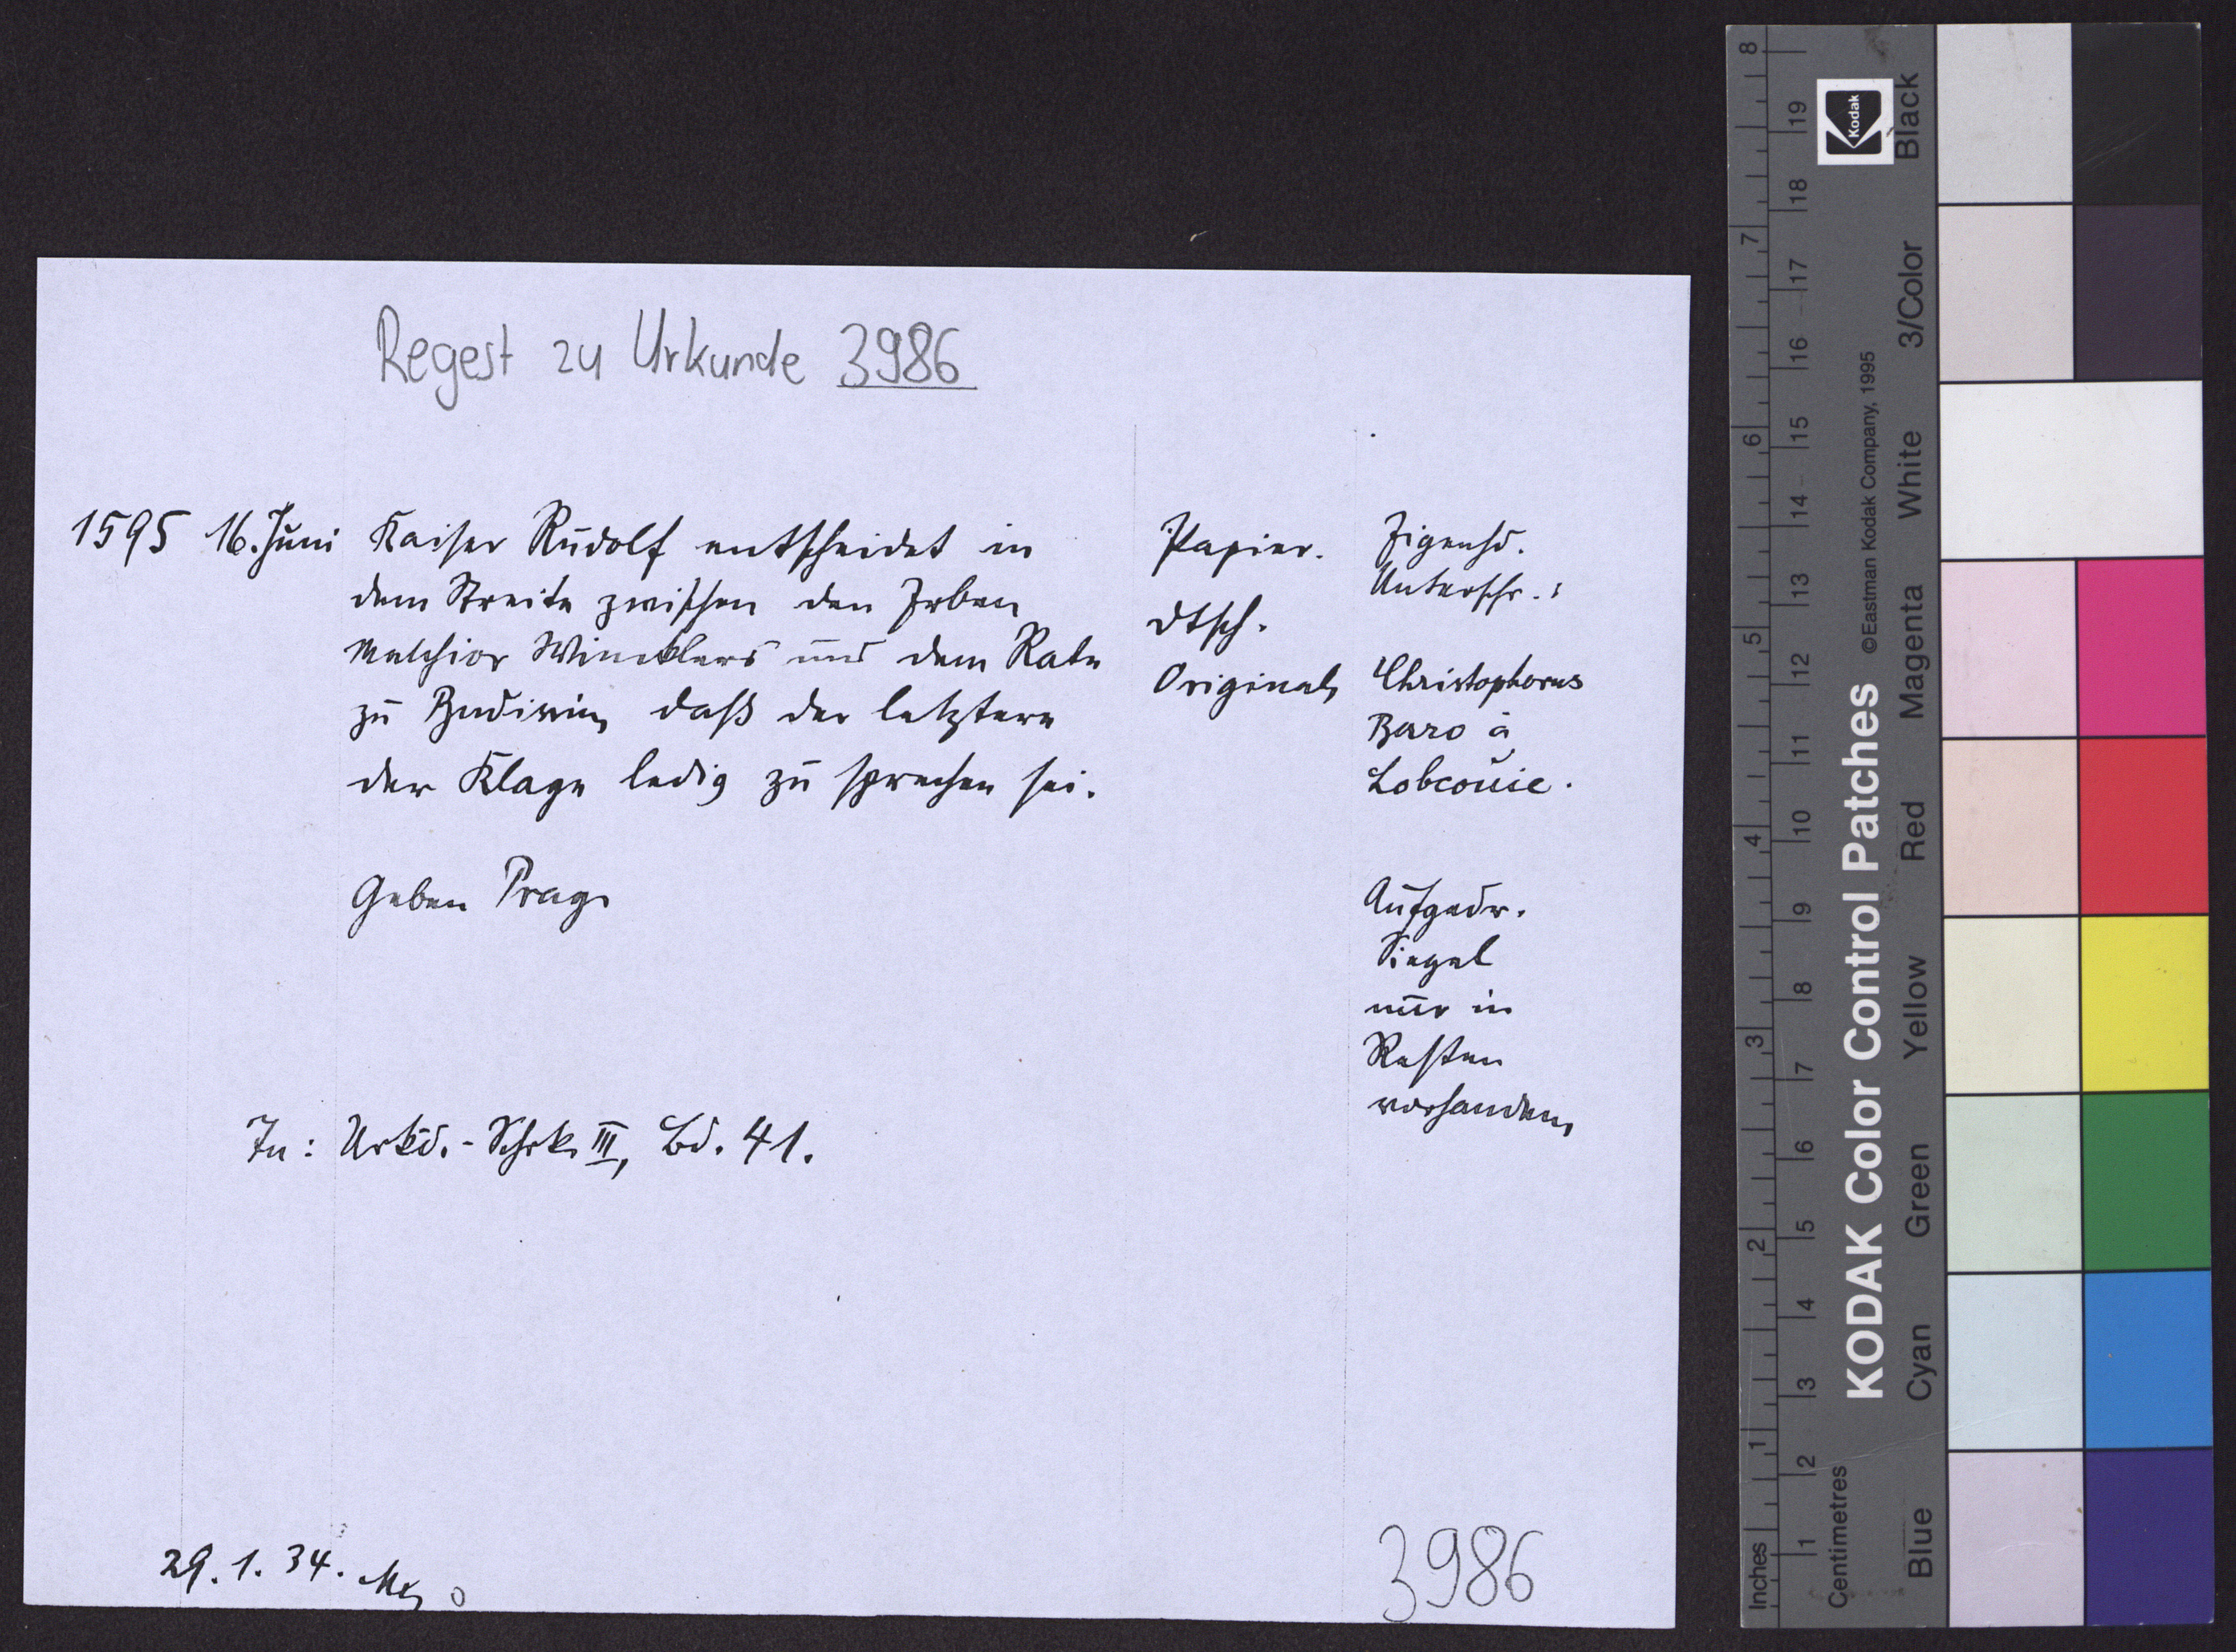 Regest zu Urkunde 3986
1595 16. Juni Kaiser Rudolf entscheidet in
dem Streite zwischen den Erben
Melchior Wincklers und dem Rate
zu Budissin, daß der letztere
der Klage ledig zu sprechen sei.
Geben Prag.
Papier.
dtsch.
Original,
Eigenhd.
Unterschr.:
Christophorus
Baro à
Lobcouic.
Aufgedr.
Siegel
nur in
Resten
vorhanden,
In: Urkd.-Schrk. III, Bd. 41.
29. 1. 34.
3986
KODAK Color Control Patches
©Eastman Kodak Company, 1995
Kodak
Inches 1 2 3 4 5 6 7 8
Centimetres 1 2 3 4 5 6 7 8 9 10 11 12 13 14 15 16 17 18 19
Blue Cyan Green Yellow Red Magenta White 3/Color Black